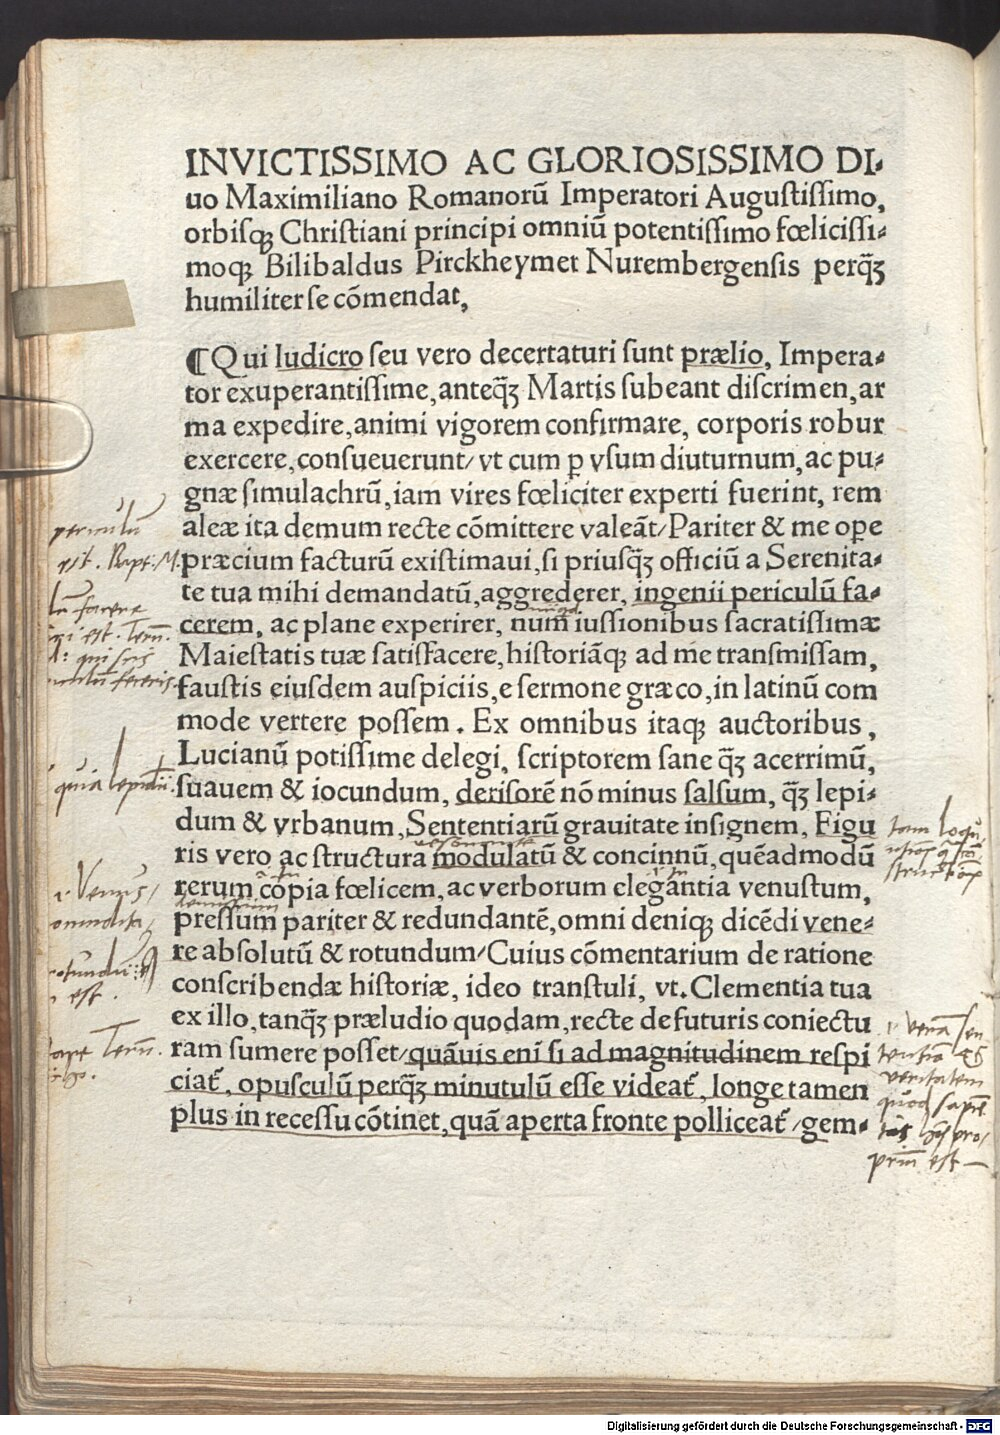 INVICTISSIMO AC GLORIOSISSIMO DI⸗
uo Maximiliano Romanorū Imperatori Auguſtiſſimo,
orbiſqȝ Chriſtiani principi omniū potentiſſimo fœliciſſi⸗
moqȝ Bilibaldus Pirckheymer Nurembergenſis perq̄ȝ
humiliter ſe cōmendat,
¶Qui ludicro ſeu vero decertaturi ſunt prælio, Impera⸗
tor exuperantiſſime, anteq̄ȝ Martis ſubeant diſcrimen, ar
ma expedire, animi vigorem confirmare, corporis robur
exercere, conſueuerunt/ vt cum ꝑ vſum diuturnum, ac pu⸗
gnæ ſimulachrū, iam vires fœliciter experti fuerint, rem
aleæ ita demum recte cōmittere valeāt/ Pariter & me oꝑe
præcium facturū exiſtimaui, ſi priusq̄ȝ officiū a Serenita⸗
te tua mihi demandatū, aggrederer, ingenii periculū fa⸗
cerem, ac plane experirer, num iuſſionibus ſacratiſſimæ
Maieſtatis tuæ ſatiſfacere, hiſtoriāqȝ ad me tranſmiſſam,
fauſtis eiuſdem auſpiciis, e ſermone græco, in latinū com
mode vertere poſſem. Ex omnibus itaqȝ auctoribus,
Lucianū potiſſime delegi, ſcriptorem ſane q̄ȝ acerrimū,
ſuauem & iocundum, deriſorē nō minus ſalſum, q̄ȝ lepi⸗
dum & vrbanum, Sententiarū grauitate inſignem, Figu
ris vero ac ſtructura modulatū & concinnū, quēadmodū
rerum copia fœlicem, ac verborum elegantia venuſtum,
preſſum pariter & redundantē, omni deniqȝ dicēdi vene⸗
re abſolutū & rotundum/ Cuius cōmentarium de ratione
conſcribendæ hiſtoriæ, ideo tranſtuli, vt. Clementia tua
ex illo, tanq̄ȝ præludio quodam, recte de futuris coniectu
ram ſumere poſſet/ quāuis enī ſi ad magnitudinem reſpi
ciat᷑, opuſculū perq̄ȝ minutulū eſſe videat᷑, longe tamen
plus in receſſu cōtinet, quā aperta fronte polliceat᷑ /gem⸗
periculū
facere
est. Tern̄.
quia lepidū
Venus,
rotundū
est.
Tern̄.
verā sen
tentiā
veritatem
prīū est
Digitalisierung gefördert durch die Deutsche Forschungsgemeinschaft - DFG